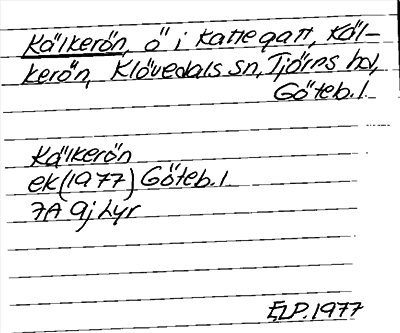 Kälkerön, ö i Kattegatt, Käl-
kerön, Klövedals sn, Tjörns hd,
Göteb. l.
Kälkerön
ek (1977) Göteb. l.
7A 9j Lyr
ELP. 1977